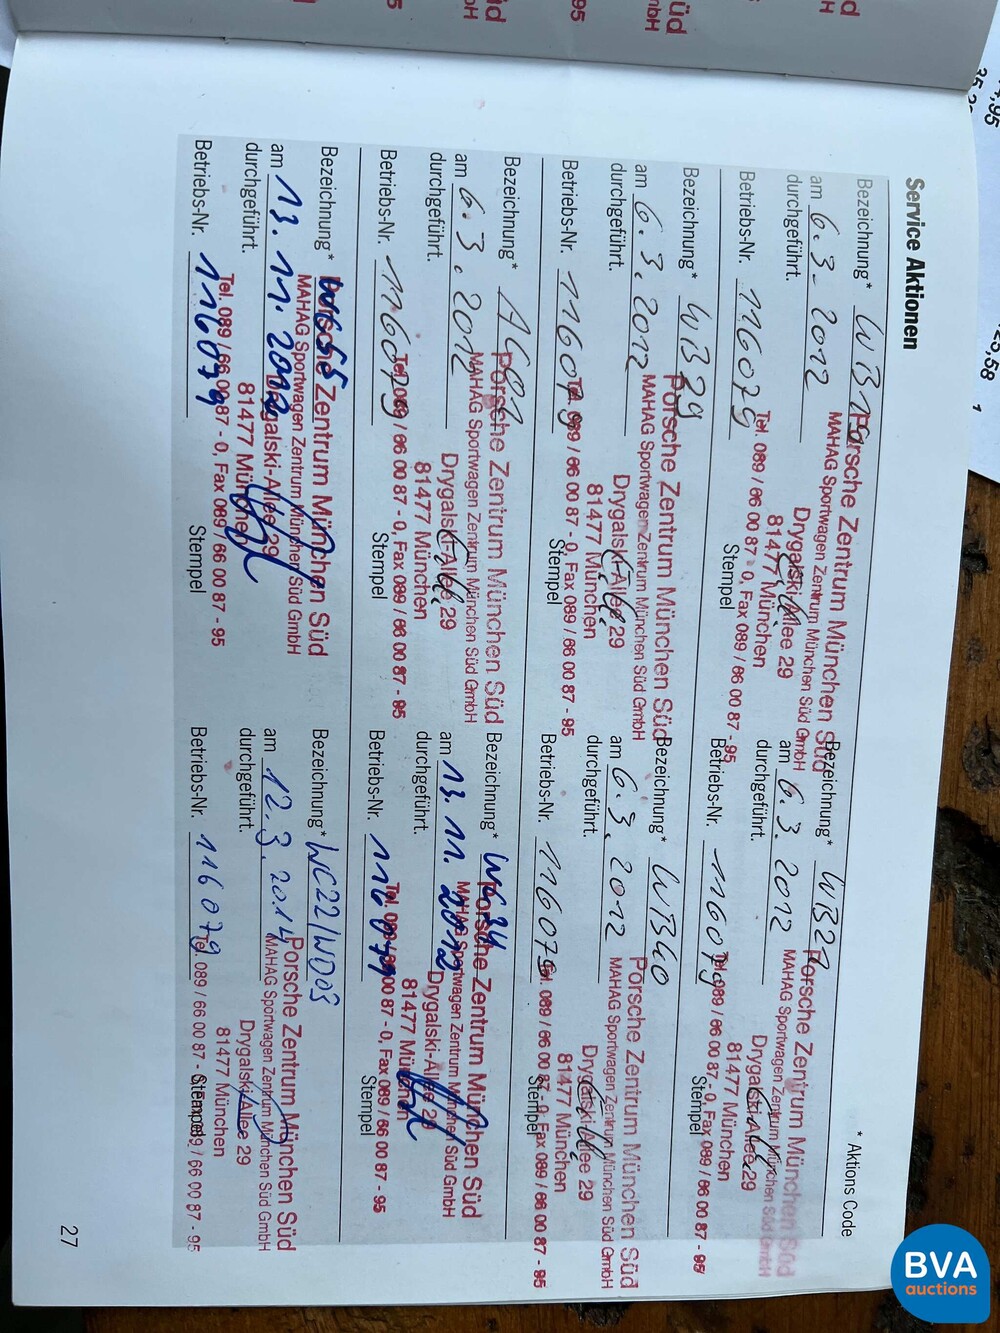 Service Aktionen
* Aktions Code
Bezeichnung*
Porsche Zentrum München Süd
MAHAG Sportwagen Zentrum München Süd GmbH
am 6.3.2012
Drygalski-Allee 29
durchgeführt.
81477 München
Tel. 089 / 66 00 87 - 0, Fax 089 / 66 00 87 - 95
Betriebs-Nr. 116079
Stempel
Bezeichnung* WB27
Porsche Zentrum München Süd
MAHAG Sportwagen Zentrum München Süd GmbH
am 6.3.2012
Drygalski-Allee 29
durchgeführt.
81477 München
Tel. 089 / 66 00 87 - 0, Fax 089 / 66 00 87 - 95
Betriebs-Nr. 116079
Stempel
Bezeichnung* WB39
Porsche Zentrum München Süd
MAHAG Sportwagen Zentrum München Süd GmbH
am 6.3.2012
Drygalski-Allee 29
durchgeführt.
81477 München
Tel. 089 / 66 00 87 - 0, Fax 089 / 66 00 87 - 95
Betriebs-Nr. 116079
Stempel
Bezeichnung* WB40
Porsche Zentrum München Süd
MAHAG Sportwagen Zentrum München Süd GmbH
am 6.3.2012
Drygalski-Allee 29
durchgeführt.
81477 München
Tel. 089 / 66 00 87 - 0, Fax 089 / 66 00 87 - 95
Betriebs-Nr. 116079
Stempel
Bezeichnung* AC01
Porsche Zentrum München Süd
MAHAG Sportwagen Zentrum München Süd GmbH
am 6.3.2012
Drygalski-Allee 29
durchgeführt.
81477 München
Tel. 089 / 66 00 87 - 0, Fax 089 / 66 00 87 - 95
Betriebs-Nr. 116079
Stempel
Bezeichnung* WC34
Porsche Zentrum München Süd
MAHAG Sportwagen Zentrum München Süd GmbH
am 13.11.2012
Drygalski-Allee 29
durchgeführt.
81477 München
Tel. 089 / 66 00 87 - 0, Fax 089 / 66 00 87 - 95
Betriebs-Nr. 116079
Stempel
Bezeichnung*
Porsche Zentrum München Süd
MAHAG Sportwagen Zentrum München Süd GmbH
am 13.11.2012
Drygalski-Allee 29
durchgeführt.
81477 München
Tel. 089 / 66 00 87 - 0, Fax 089 / 66 00 87 - 95
Betriebs-Nr. 116079
Stempel
Bezeichnung* WC22/WD03
Porsche Zentrum München Süd
MAHAG Sportwagen Zentrum München Süd GmbH
am 12.3.2014
Drygalski-Allee 29
durchgeführt.
81477 München
Tel. 089 / 66 00 87 - 0, Fax 089 / 66 00 87 - 95
Betriebs-Nr. 116079
Stempel
27
BVA
auctions